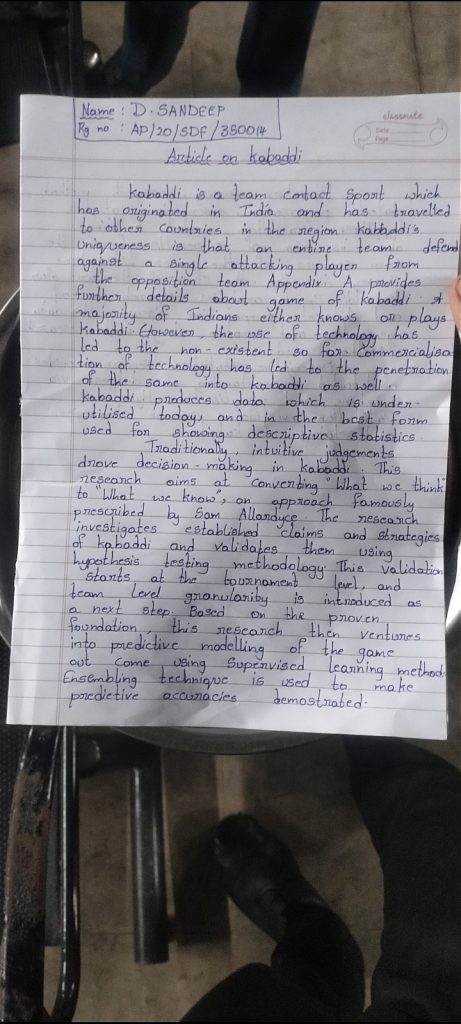 Name : D. SANDEEP
Rg no : AP/20/SDF/350014
classmate
Date
Page
Article on kabaddi
kabaddi is a team contact sport which
has originated in India and has travelled
to other countries in the region. kabbadi's
uniqueness is that an entire team defend
against a single attacking player from
the opposition team Appendix A provides
further details about game of kabaddi. A
majority of Indians either knows or plays
kabaddi. However, the use of technology has
led to the non-existent so far. Commercialisa-
tion of technology has led to the penetration
of the same into kabaddi as well.
kabaddi produces data which is under-
utilised today, and in the best form
used for showing descriptive statistics.
Traditionally, intuitive judgements
drove decision-making in kabaddi. This
research aims at converting "What we think"
to "What we know", an approach famously
prescribed by Sam Allandyce. The research
investigates established claims and strategies
of kabaddi and validates them using
hypothesis testing methodology. This validation
starts at the tournament level, and
team level granularity is introduced as
a next step. Based on the proven
foundation, this research then ventures
into predictive modelling of the game
out come using Supervised learning method.
Ensembling technique is used to make
predictive accuracies demostrated.